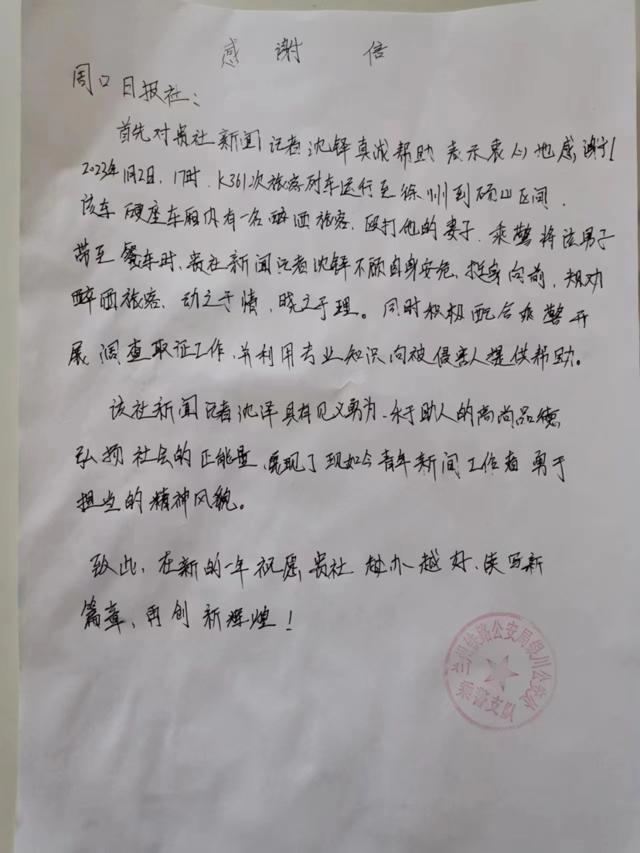 感谢信
周口日报社：
首先对贵社新闻记者沈铎真诚帮助表示衷心地感谢！
2023年1月2日，17时，K361次旅客列车运行至徐州到砀山区间，
该车硬座车厢内有一名醉酒旅客，殴打他的妻子，乘警将该男子
带至餐车时，贵社新闻记者沈铎不顾自身安危，挺身向前，规劝
醉酒旅客，动之于情，晓之于理。同时积极配合乘警开
展调查取证工作，并利用专业知识向被侵害人提供帮助。
该社新闻记者沈泽具有见义勇为、乐于助人的高尚品德，
弘扬社会的正能量，展现了现如今青年新闻工作者勇于
担当的精神风貌。
致此，在新的一年祝愿贵社越办越好、谱写新
篇章，再创新辉煌！
兰州铁路公安局银川公安处
乘警支队